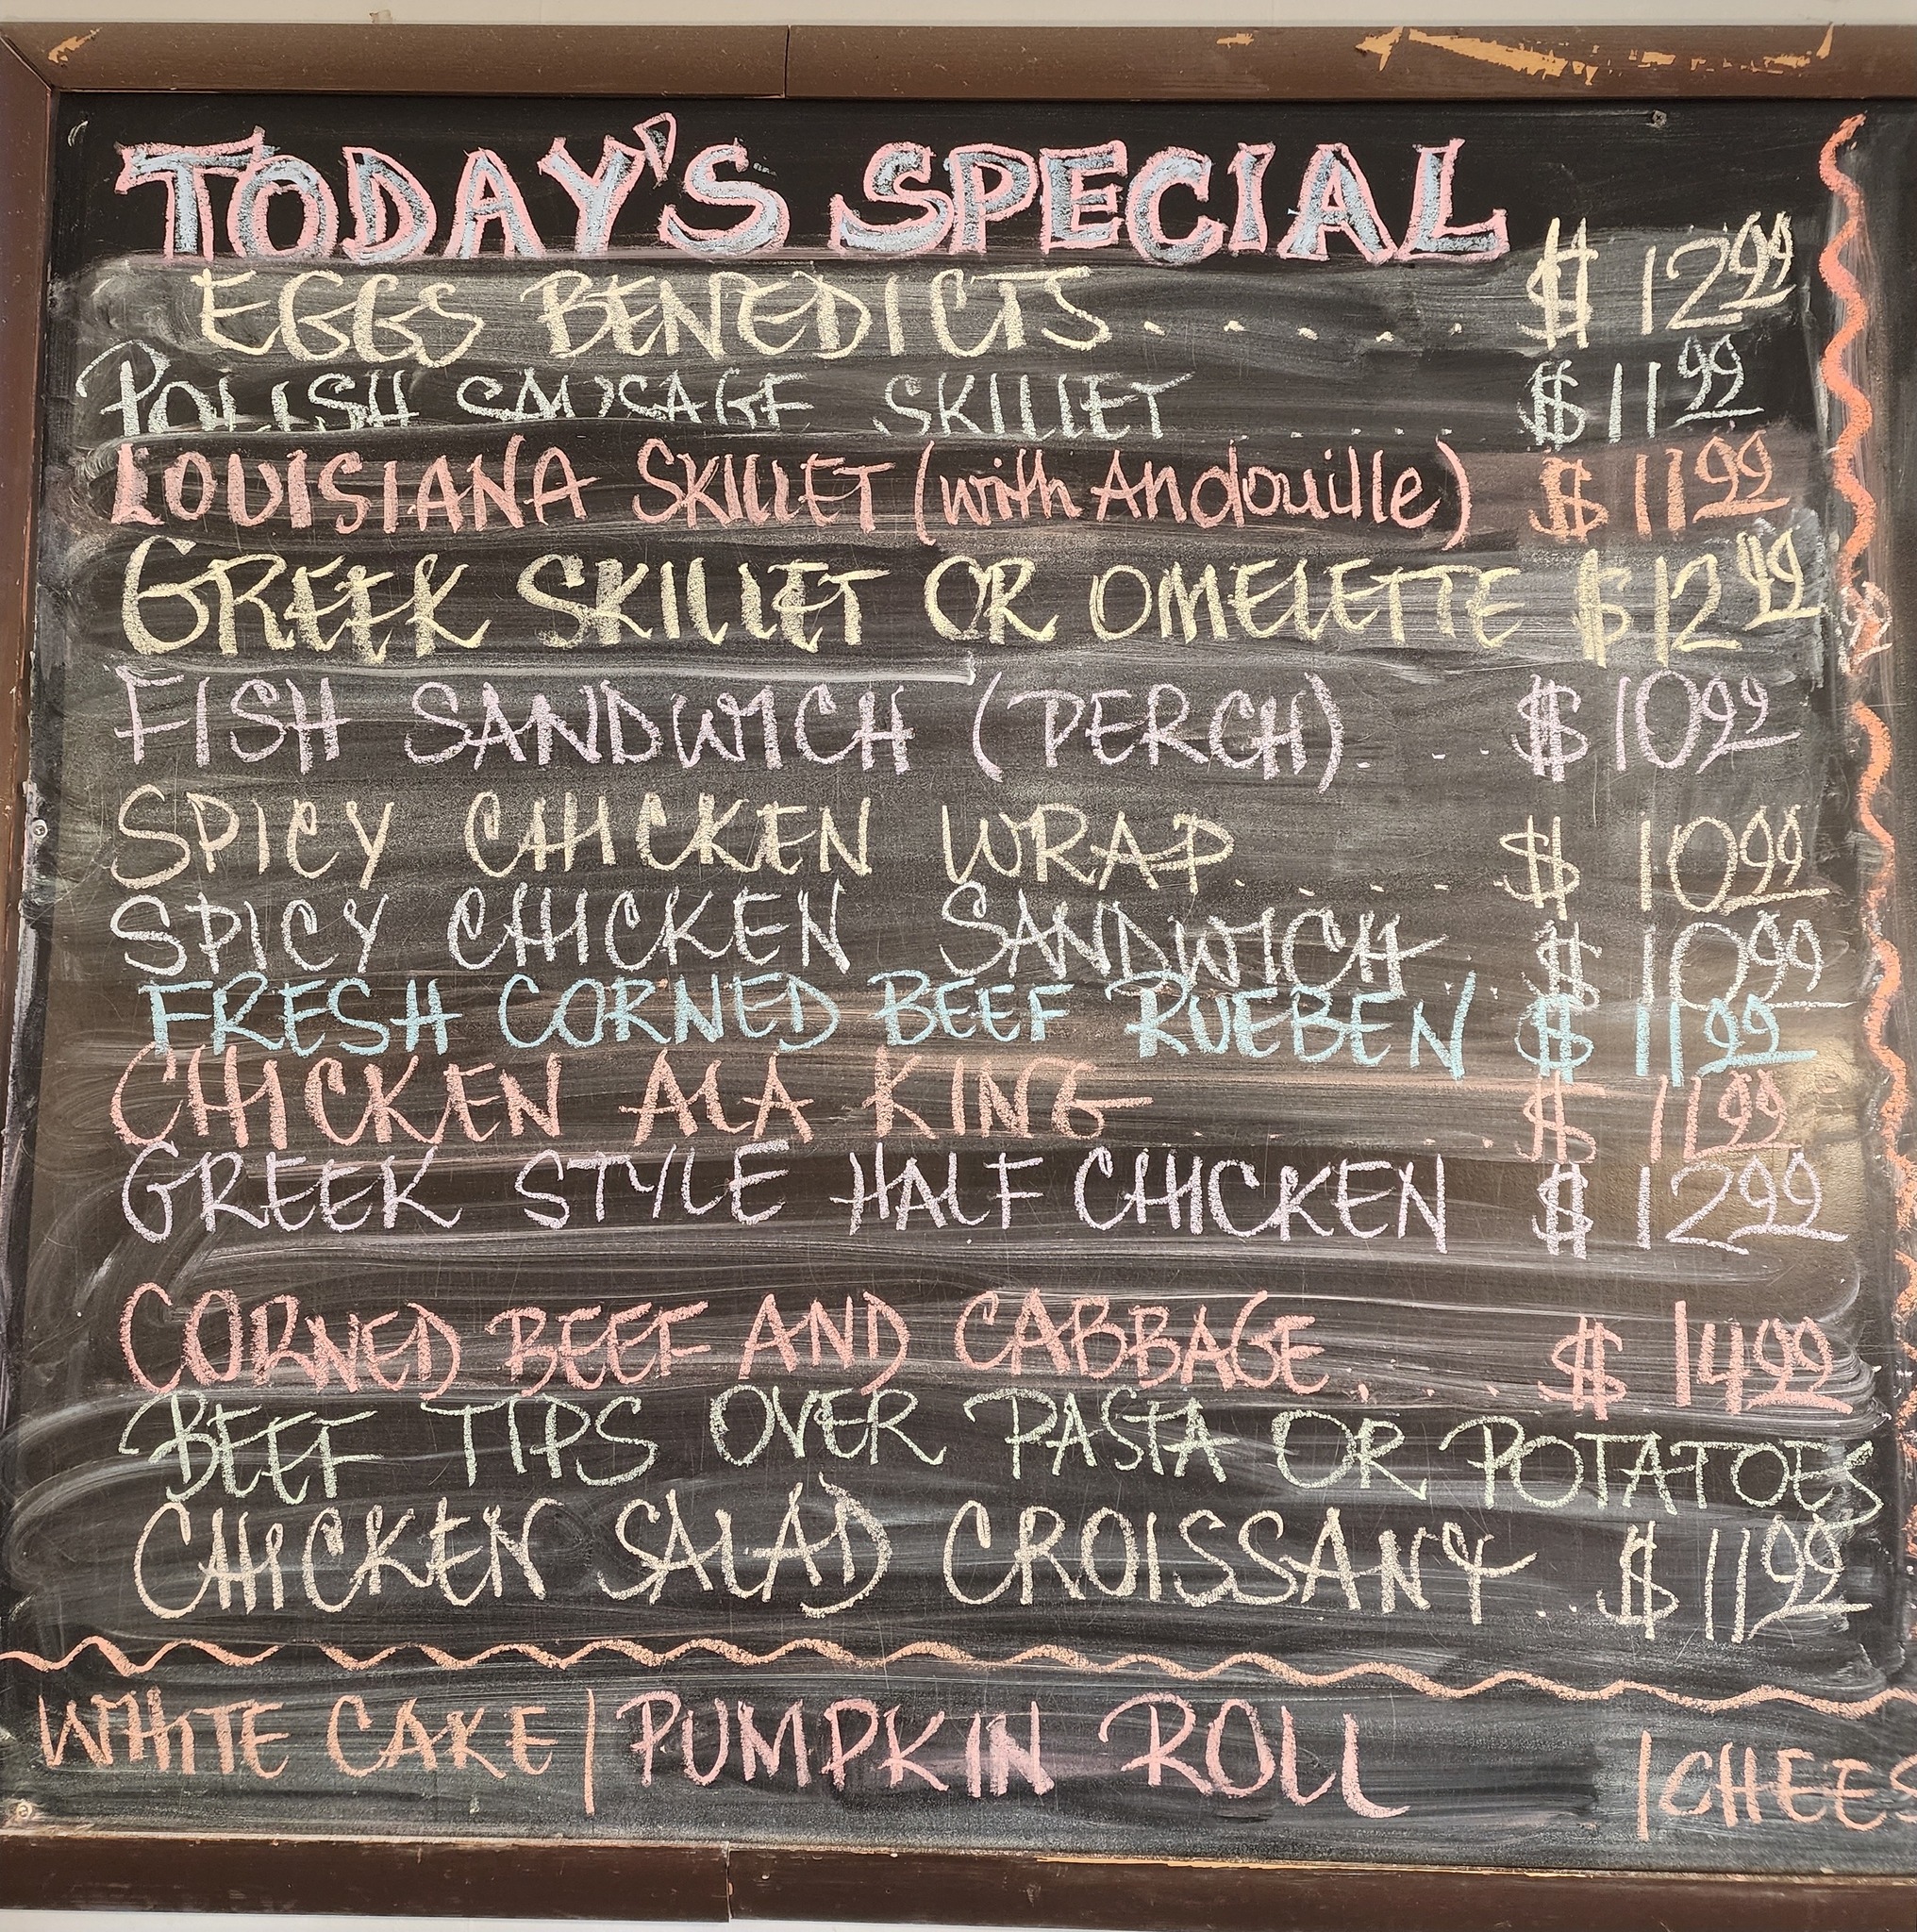 TODAY'S SPECIAL
EGGS BENEDICTS....... $12.99
POLISH SAUSAGE SKILLET...... $11.99
LOUISIANA SKILLET (with Andouille) $11.99
GREEK SKILLET OR OMELETTE $12.49
FISH SANDWICH (PERCH)... $10.99
SPICY CHICKEN WRAP...... $10.99
SPICY CHICKEN SANDWICH.. $10.99
FRESH CORNED BEEF RUEBEN $11.99
CHICKEN ALA KING..... $11.99
GREEK STYLE HALF CHICKEN $12.99
CORNED BEEF AND CABBAGE.... $14.99
BEEF TIPS OVER PASTA OR POTATOES
CHICKEN SALAD CROISSANT.. $11.99
WHITE CAKE | PUMPKIN ROLL | CHEES